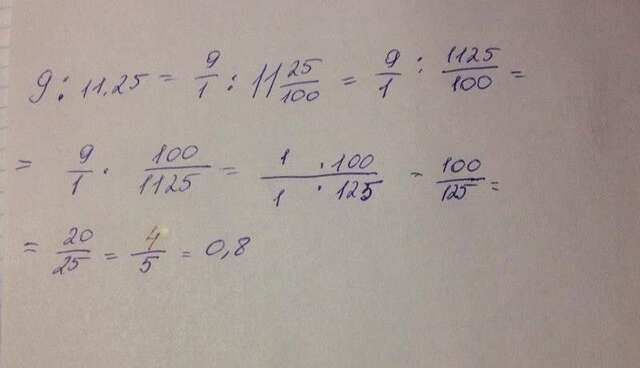 9 : 11.25 = 9/1 : 11 25/100 = 9/1 : 1125/100 =
= 9/1 · 100/1125 = 1 · 100/1 · 125 = 100/125 =
= 20/25 = 4/5 = 0,8